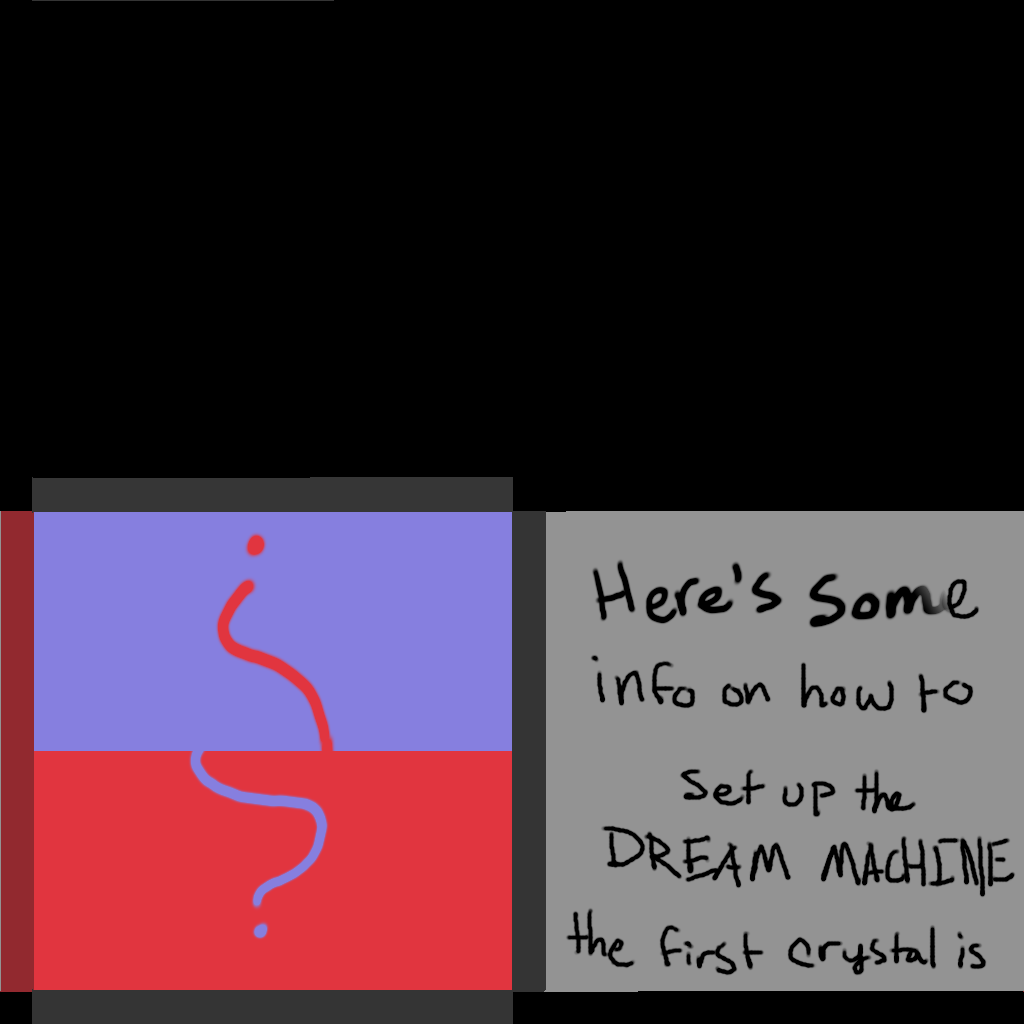 Here's some
info on how to
set up the
DREAM MACHINE
the first crystal is